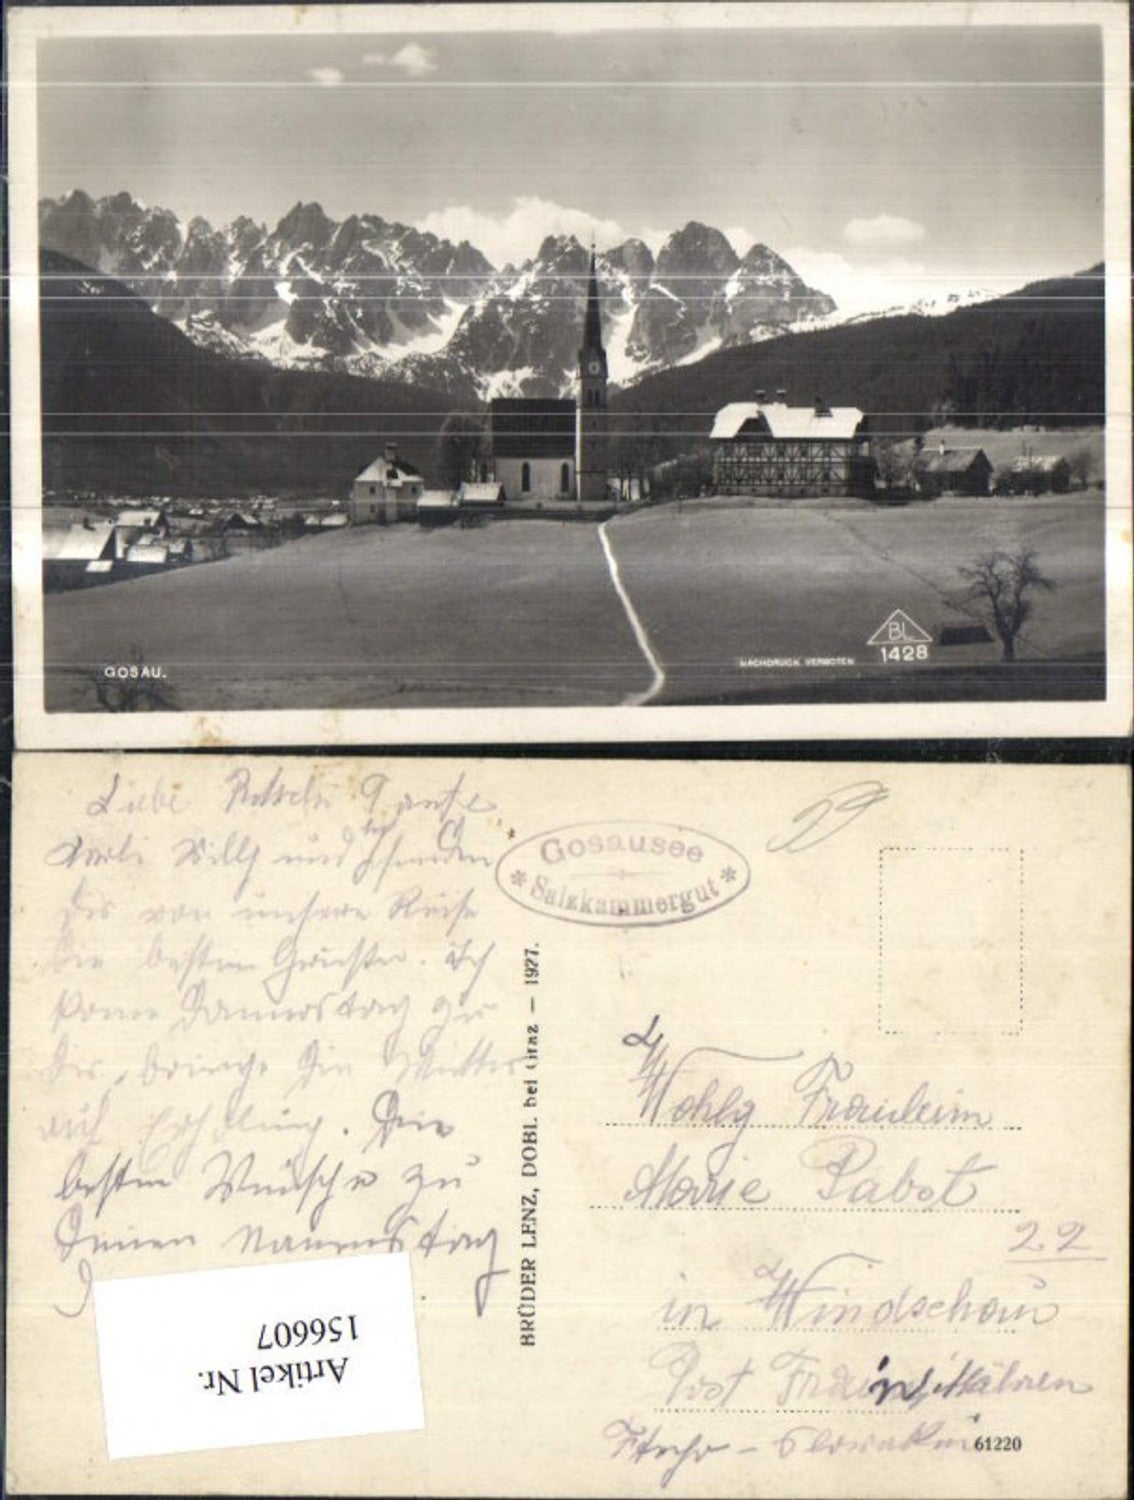 GOSAU.
NACHDRUCK VERBOTEN
BL
1428
Liebe
Willy und
von unsere Reise
die besten Grüsse. Ich
komme Donnerstag zu
Dir, bringe die Mutter
auf Erholung. Die
besten Wünsche zu
Deinen Namenstag
Gosausee
* Salzkammergut *
BRÜDER LENZ, DOBL bei Graz — 1927.
Wohlg Fräuleim
Marie Pabst
22
in Windschau
Post Frain, Mähren
Tschecho - Slowakei
61220
Artikel Nr.
156607